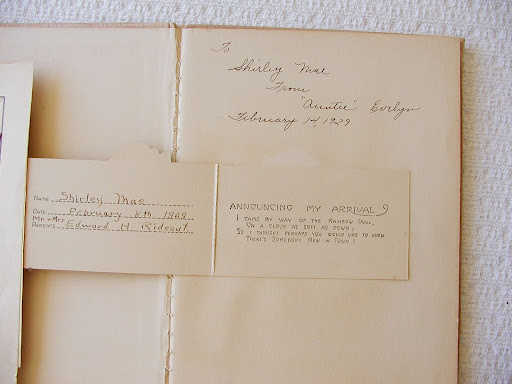 To
Shirley Mae
From
"Auntie" Evelyn
February 14, 1929.
Name Shirley Mae
Date February 8th 1929
Mr + Mrs
Parents Edward H Rideout
ANNOUNCING MY ARRIVAL
I CAME BY WAY OF THE RAINBOW TRAIL,
ON A CLOUD AS SOFT AS DOWN;
SO I THOUGHT PERHAPS YOU WOULD LIKE TO KNOW
THERE'S SOMEBODY NEW IN TOWN!